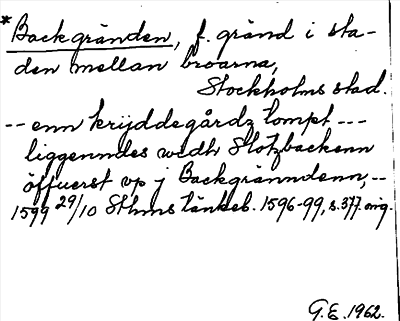 *Backgränden, f. gränd i sta-
den mellan broarna,
Stockholms stad.
-- enn krijddegårdz tompt ---
liggenndes wedh Slotzbackenn
öffuerst vp j Backgränndenn, --
1599 29/10 Sthms tänkeb. 1596-99, s. 377. orig.
G.E. 1962.